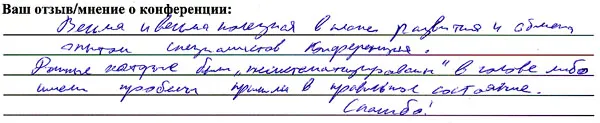 Ваш отзыв/мнение о конференции:
Весьма и весьма полезная в плане развития и обмена
опытом специалистов конференция.
Данные которые были "несистематизированы" в голове либо
имели пробелы пришли в правильное состояние.
Спасибо!